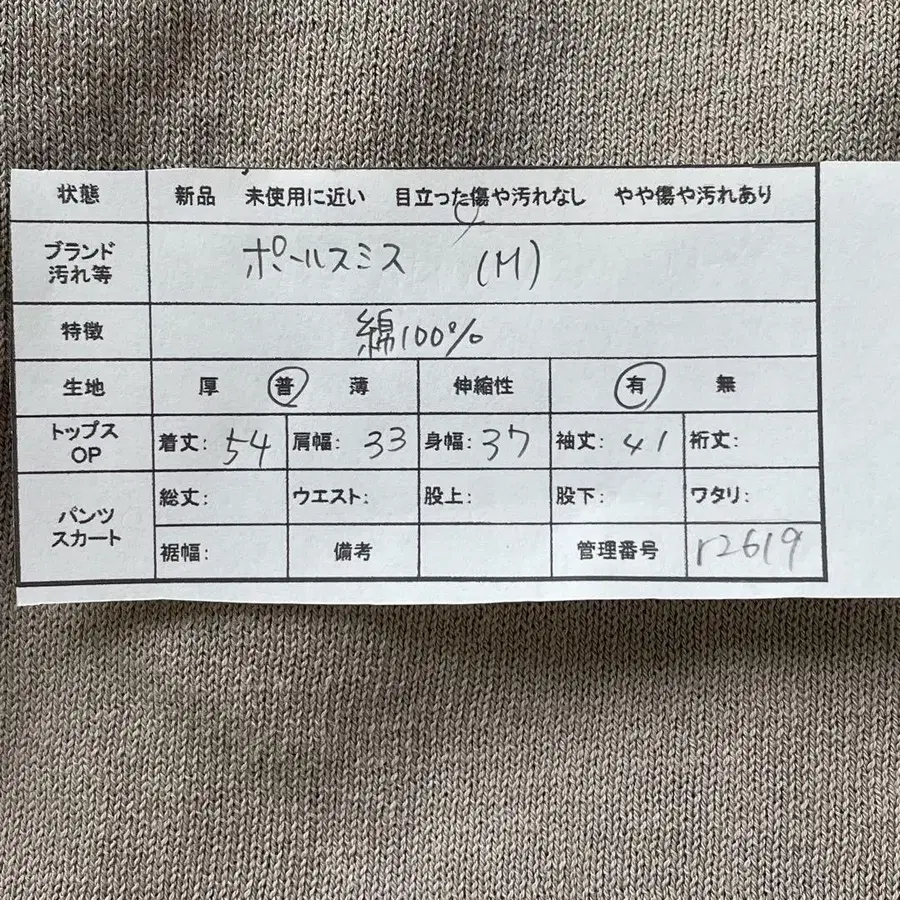 状態 新品 未使用に近い 目立った傷や汚れなし やや傷や汚れあり
ブランド
汚れ等
ポールスミス (M)
特徴 綿100%
生地 厚 普 薄 伸縮性 有 無
トップス
OP
着丈: 54 肩幅: 33 身幅: 37 袖丈: 41 裄丈:
パンツ
スカート
総丈: ウエスト: 股上: 股下: ワタリ:
裾幅: 備考 管理番号 r2619